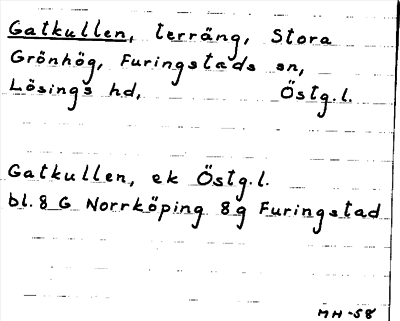 Gatkullen, terräng, Stora
Grönhög, Furingstads sn,
Lösings hd, Östg.l.
Gatkullen, ek Östg.l.
bl. 8 G Norrköping 8g Furingstad
MH-58